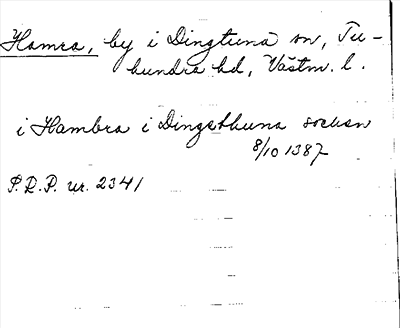 Hamra, by i Dingtuna sn, Tu-
hundra hd, Västm. l.
i Hambra i Dingethuna socken
8/10 1387
P.R.P. nr. 2341